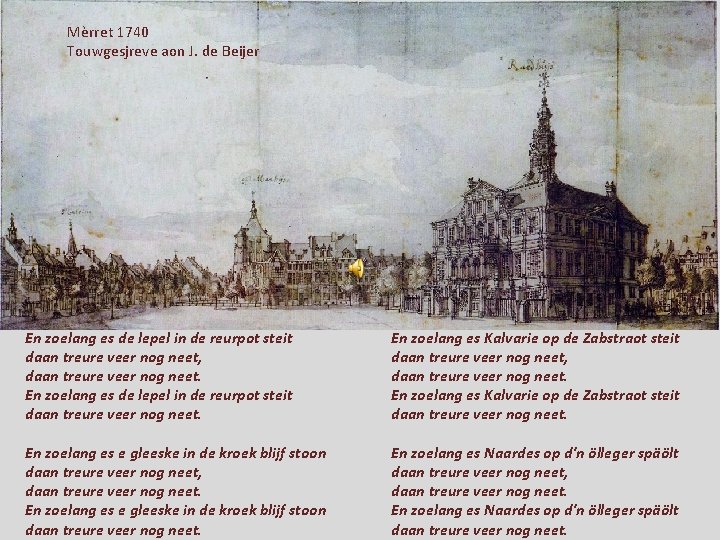 Mèrret 1740
Touwgesjreve aon J. de Beijer
Raedhuys
En zoelang es de lepel in de reurpot steit
daan treure veer nog neet,
daan treure veer nog neet.
En zoelang es de lepel in de reurpot steit
daan treure veer nog neet.
En zoelang es e gleeske in de kroek blijf stoon
daan treure veer nog neet,
daan treure veer nog neet.
En zoelang es e gleeske in de kroek blijf stoon
daan treure veer nog neet.
En zoelang es Kalvarie op de Zabstraot steit
daan treure veer nog neet,
daan treure veer nog neet.
En zoelang es Kalvarie op de Zabstraot steit
daan treure veer nog neet.
En zoelang es Naardes op d'n ölleger späölt
daan treure veer nog neet,
daan treure veer nog neet.
En zoelang es Naardes op d'n ölleger späölt
daan treure veer nog neet.